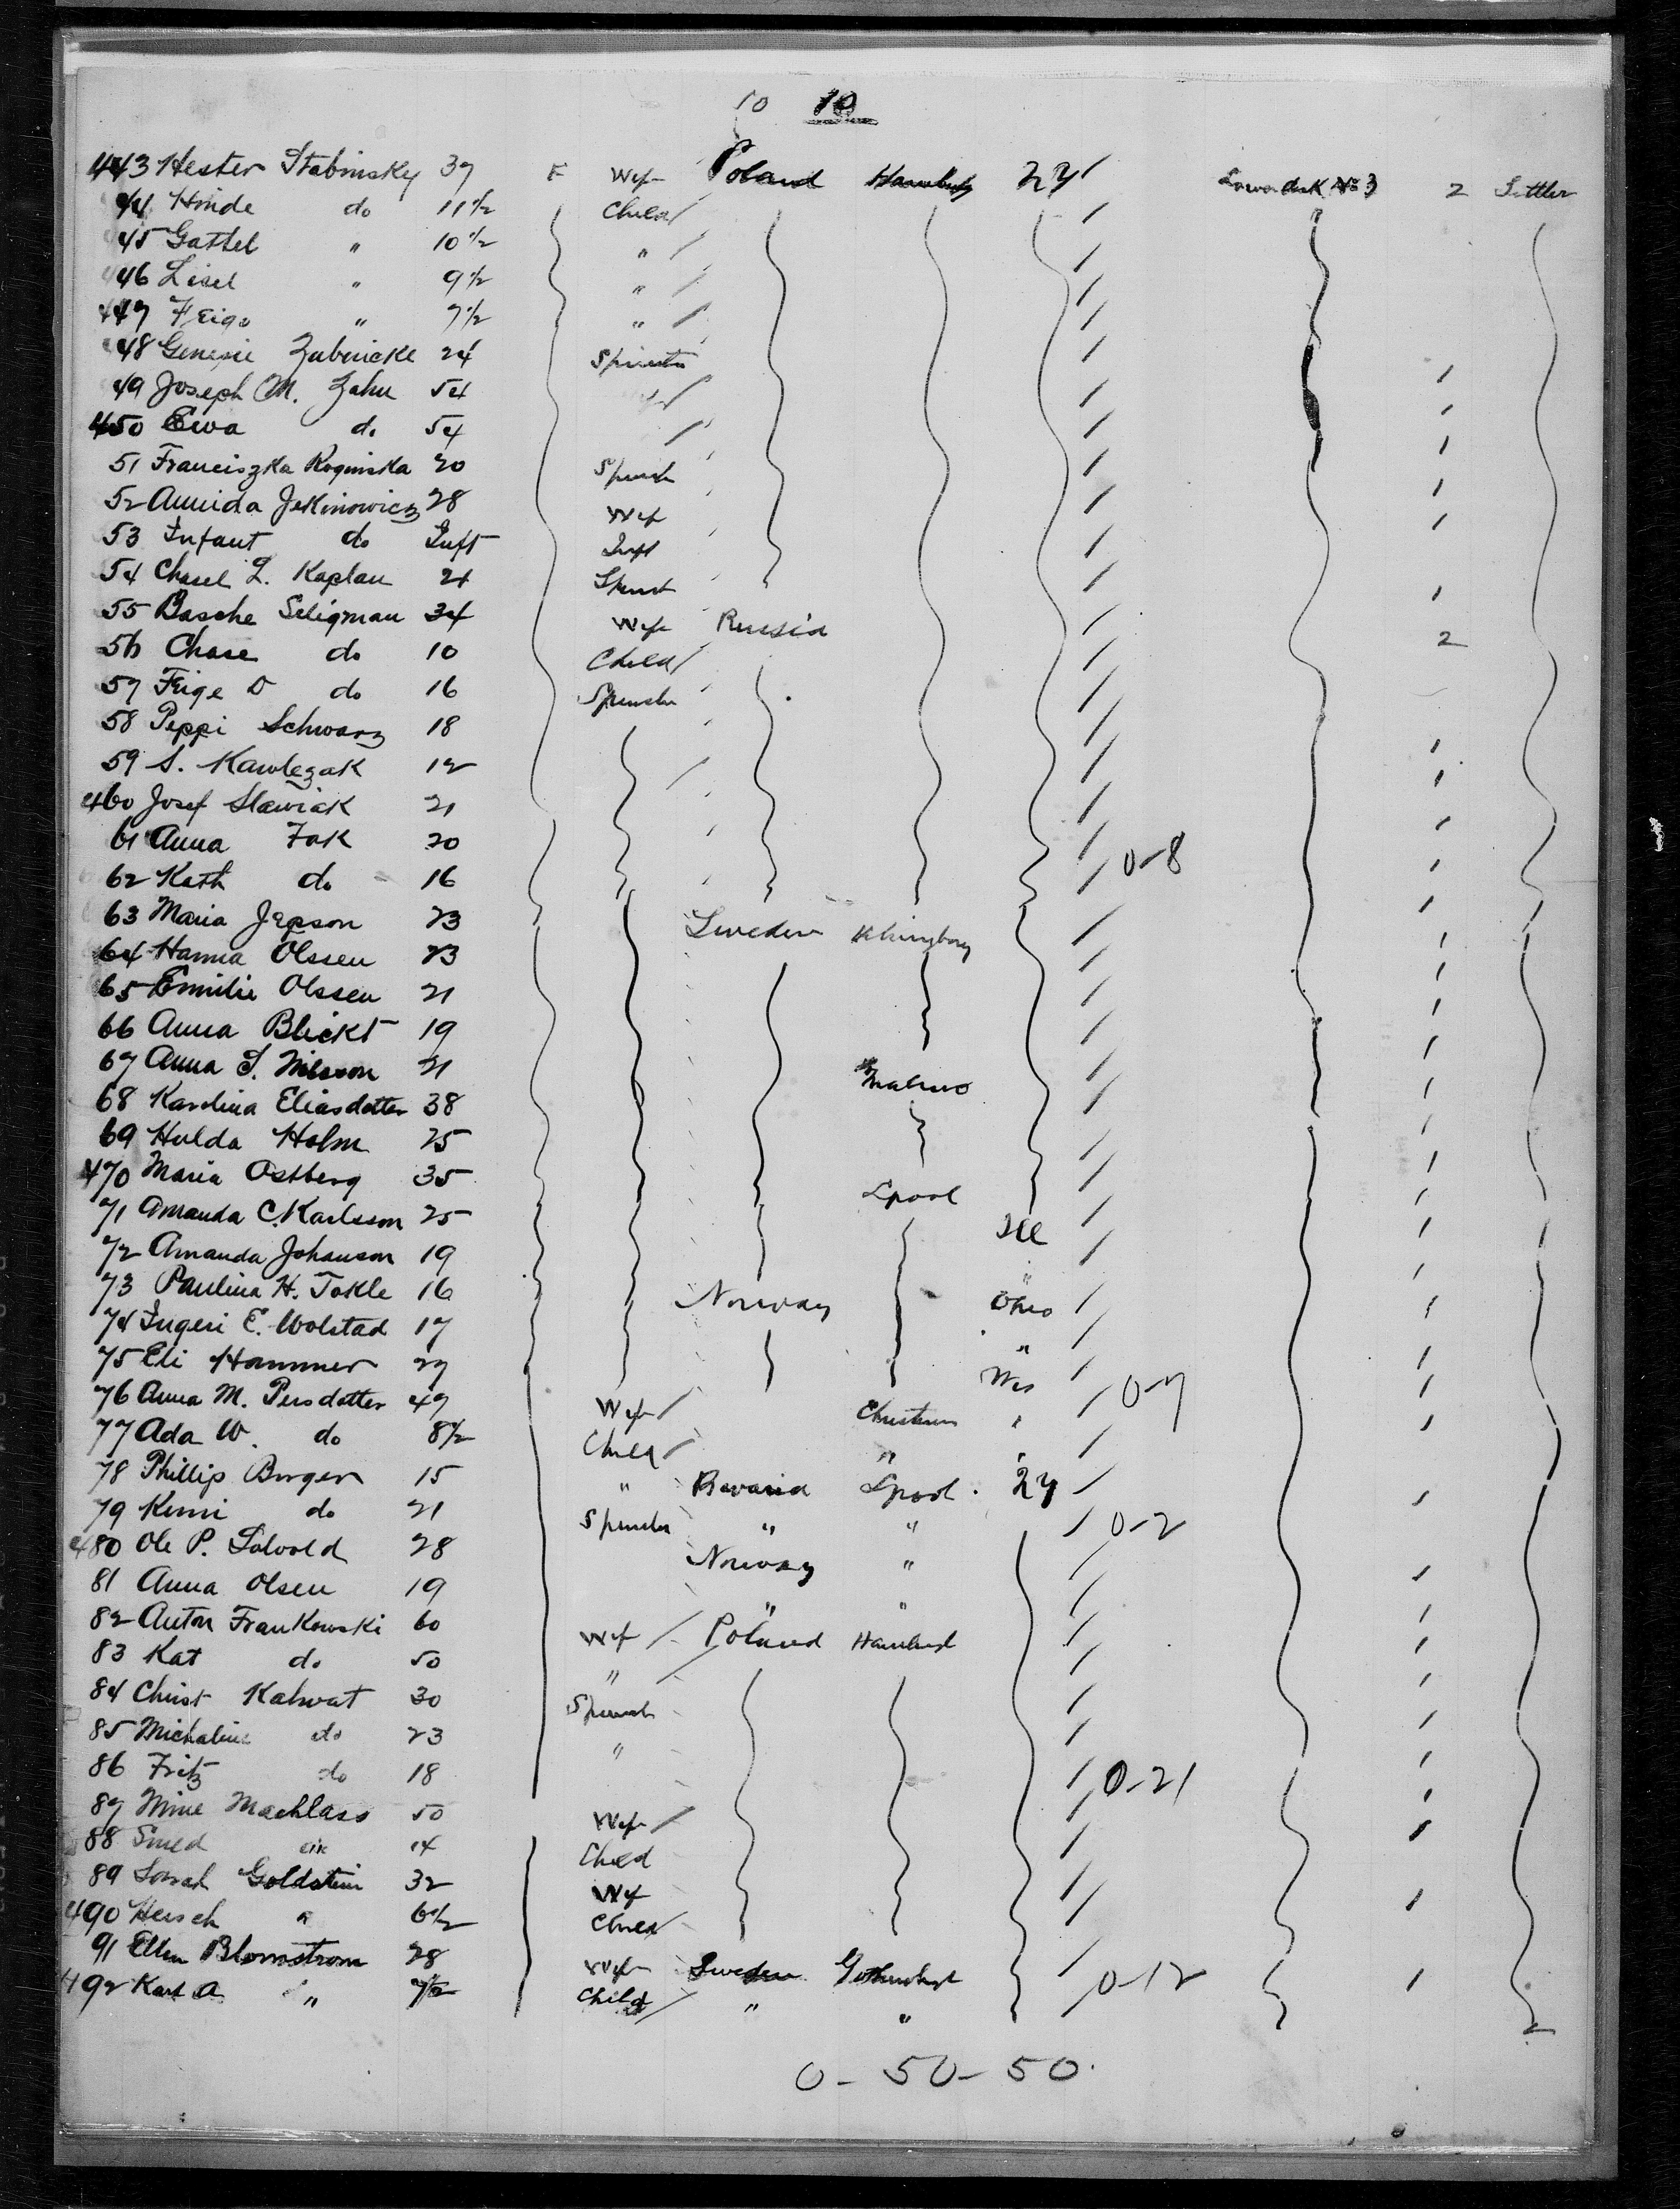 10 10
443 Hester Stabinsky 37 F Wife Poland Hamburg NY Lower deck No 3 2 Settler
44 Hinde do 11½ Child
45 Gattel " 10½ "
446 Lisel " 9½ "
447 Feige " 7½ "
48 Genesie Zubricke 24 Spinster
49 Joseph M. Zahn 54
450 Ewa do 54
51 Franciszka Roginska 20 Spinst
52 Amida Jekinowicz 28 Wife
53 Infant do Inft Inft
54 Chasel L. Kaplan 21 Spinst
55 Basche Seligman 34 Wife Russia 2
56 Chase do 10 Child
57 Feige D do 16 Spinster
58 Peppi Schwarz 18
59 S. Kawlezak 12
460 Josef Slawiak 21
61 Anna Fak 20 0-8
62 Kath do 16
63 Maria Jepson 23 Sweden
64 Hanna Olssen 23
65 Emilie Olssen 21
66 Anna Blickt 19
67 Anna S. Nilsson 21 Malmo
68 Karolina Eliasdotter 38
69 Hulda Holm 25
470 Maria Ostberg 35 Lpool
71 Amanda C. Karlsson 25 Ill
72 Amanda Johanson 19 "
73 Paulina H. Tokle 16 Norway Ohio
74 Ingeri E. Wolstad 17 "
75 Eli Hammer 27 Wis
76 Anna M. Persdotter 47 Wife " 0-7
77 Ada W. do 8½ Child " "
78 Phillip Burger 15 " Bavaria Lpool NY
79 Kemi do 21 Spinster " " 0-2
480 Ole P. Solvold 28 Norway "
81 Anna Olsen 19 " "
82 Anton Frankowski 60 Wife Poland Hamburg
83 Kat do 50 "
84 Christ Kalwat 30 Spinst
85 Michaline do 23 "
86 Fritz do 18 0-21
87 Mine Machlass 50 Wife
88 14 Child
89 Sarah Goldstein 32 Wife
490 Hersch " 6½ Child
91 Ellen Blomstrom 28 Wife Sweden Gothenburg 0-12
492 Karl A " Child " "
0-50-50